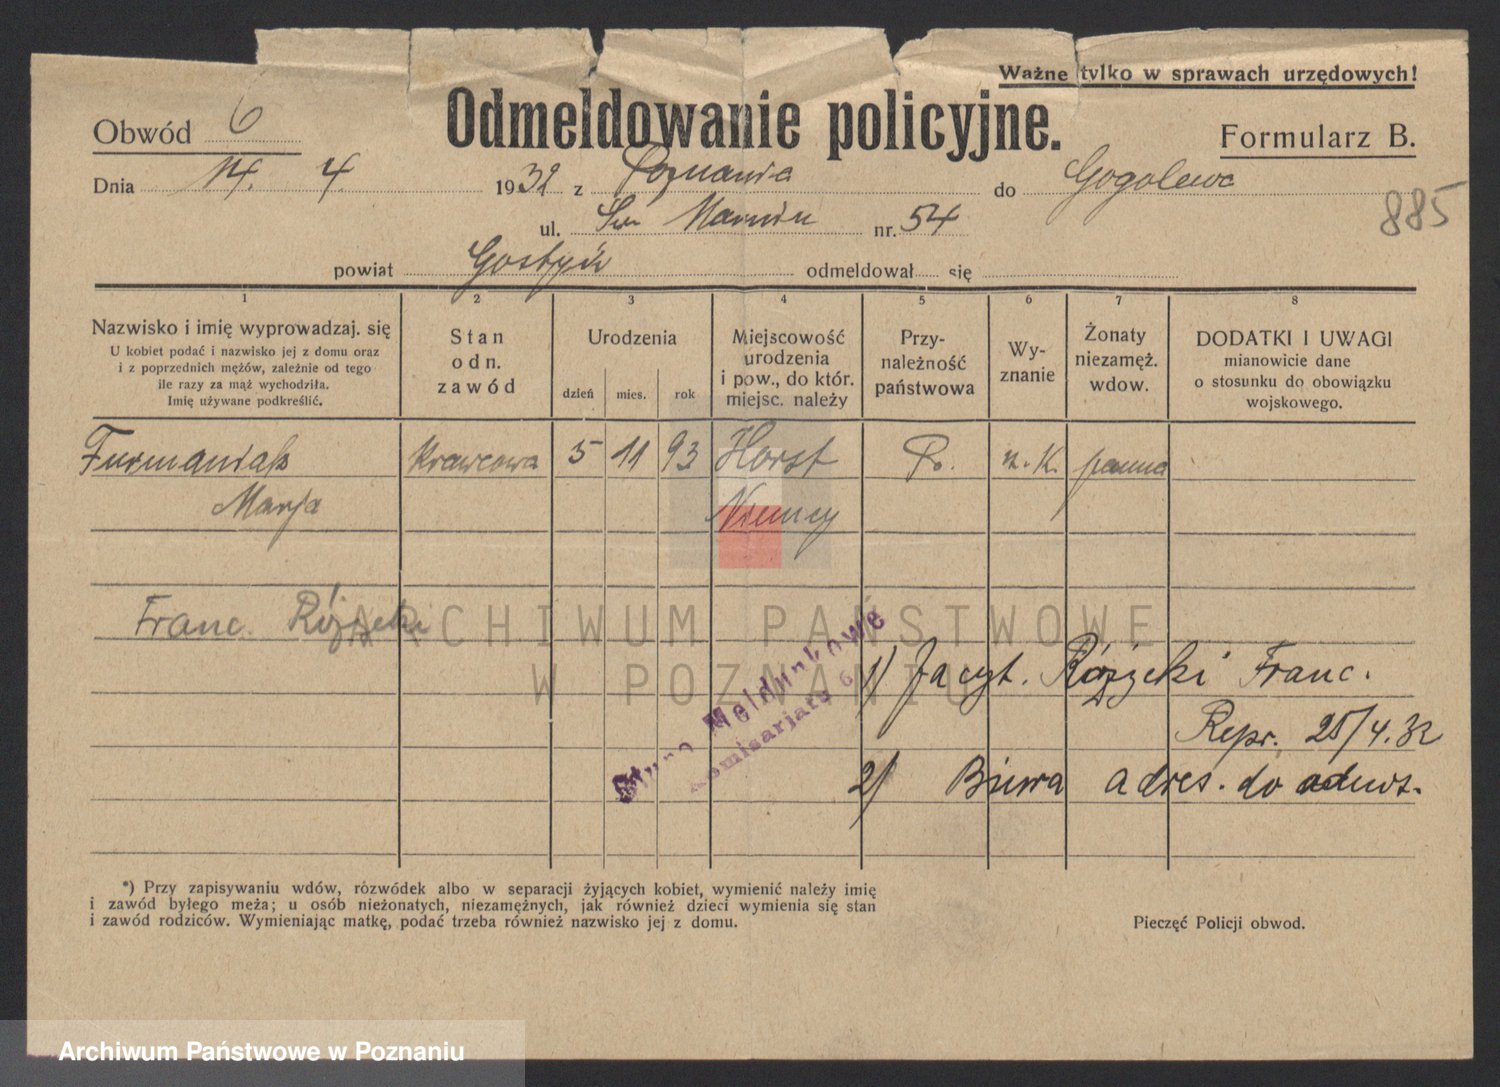 Ważne tylko w sprawach urzędowych!
Obwód 6
Odmeldowanie policyjne.
Formularz B.
Dnia 14. 4. 1932 z Poznania do Gogolewa
885
ul. Św Marcin nr. 54
powiat Gostyń odmeldował się
1 2 3 4 5 6 7 8
Nazwisko i imię wyprowadzaj. się
U kobiet podać i nazwisko jej z domu oraz
i z poprzednich mężów, zależnie od tego
ile razy za mąż wychodziła.
Imię używane podkreślić.
Stan
odn.
zawód
Urodzenia
dzień mies. rok
Miejscowość
urodzenia
i pow., do któr.
miejsc. należy
Przy-
należność
państwowa
Wy-
znanie
Żonaty
niezamęż.
wdow.
DODATKI I UWAGI
mianowicie dane
o stosunku do obowiązku
wojskowego.
Furmaniak Krawcowa 5 11 93 Horst P. r. K. panna
Marja Niemcy
Franc. Różycki
ARCHIWUM PAŃSTWOWE
W POZNANIU
Biuro Meldunkowe
Komisarjatu 6
1) Jacyt. Różycki Franc.
Repr. 25/4.32
2) Biura adres. do
*) Przy zapisywaniu wdów, rozwódek albo w separacji żyjących kobiet, wymienić należy imię
i zawód byłego meża; u osób nieżonatych, niezamężnych, jak również dzieci wymienia się stan
i zawód rodziców. Wymieniając matkę, podać trzeba również nazwisko jej z domu.
Pieczęć Policji obwod.
Archiwum Państwowe w Poznaniu